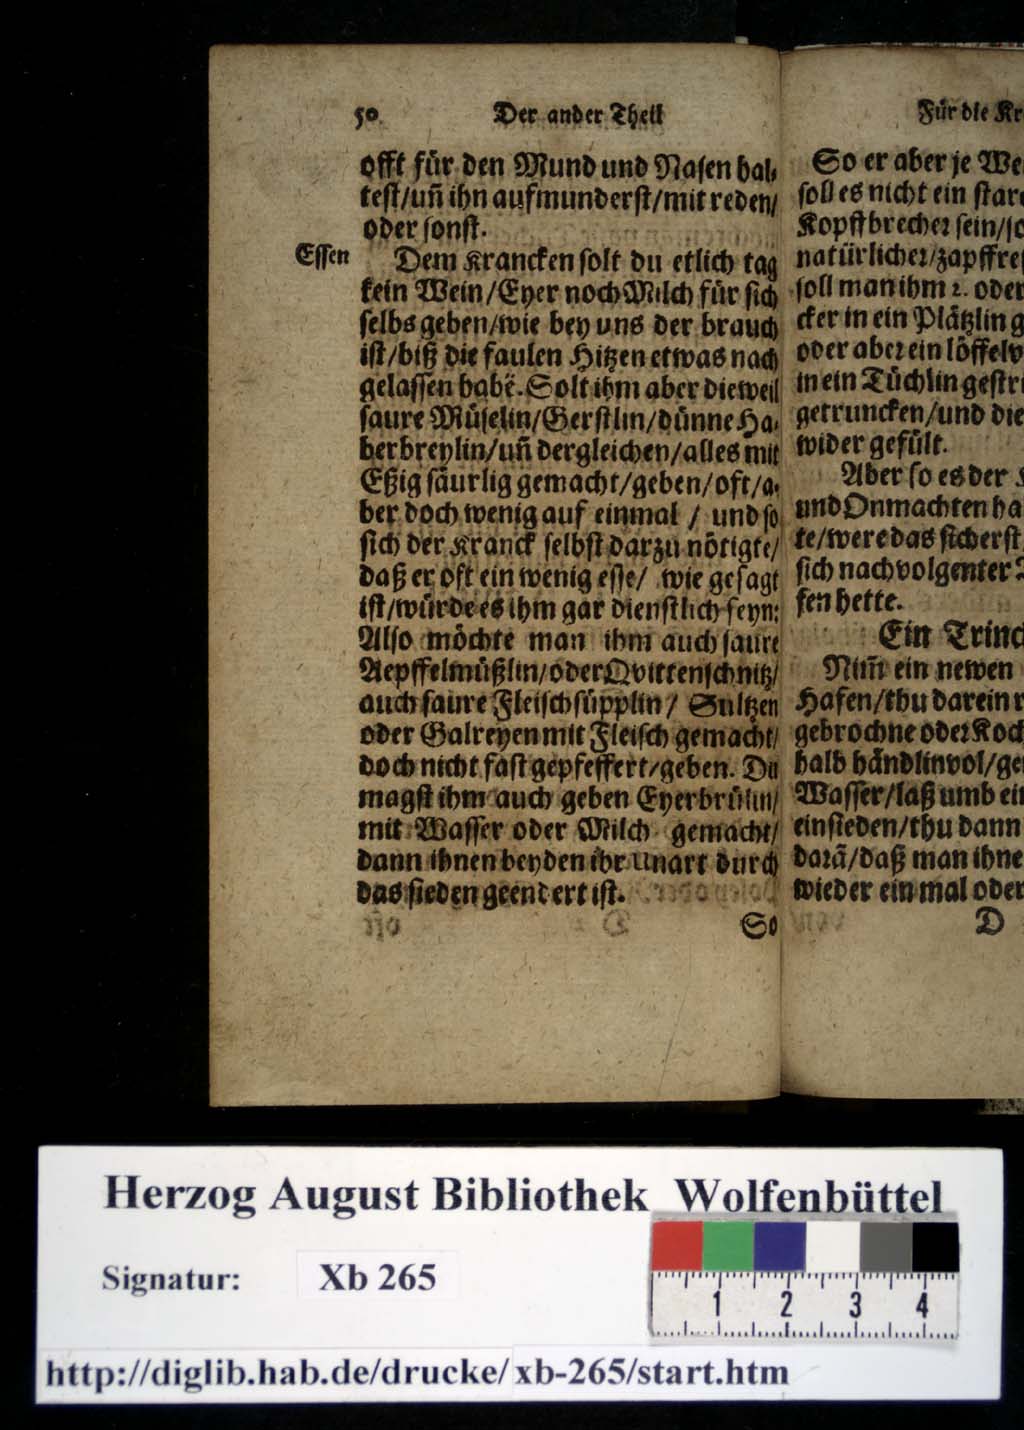 50 Der ander Theil
offt für den Mund und Nasen hal⸗
test/uñ ihn aufmunderst/mit reden/
oder sonst.
Essen
Dem Krancken solt du etlich tag
kein Wein/Eyer noch Milch für sich
selbs geben/wie bey uns der brauch
ist/biß die faulen Hitzen etwas nach
gelassen habē. Solt ihm aber dieweil
saure Müselin/Gerstlin/dünne Ha⸗
berbreylin/uñ dergleichen/alles mit
Eßig säurlig gemacht/geben/oft/a⸗
ber doch wenig auf einmal / und so
sich der Kranck selbst darzu nötigte/
daß er oft ein wenig esse/ wie gesagt
ist/würde es ihm gar dienstlich seyn:
Also möchte man ihm auch saure
Aepffelmüßlin/oder Qvittenschnitz/
auch saure Fleischsüpplin/ Sultzen
oder Galreyen mit Fleisch gemacht/
doch nicht fast gepfeffert/geben. Du
magst ihm auch geben Eyerbrülin/
mit Wasser oder Milch gemacht/
dann ihnen beyden ihr Unart durch
das sieden geendert ist.
So
Für die Kr
So er aber je We
soll es nicht ein star
Kopffbrecher sein/so
natürlicher/zapffre
soll man ihm 2. oder
cker in ein Plätzlin g
oder aber ein löffelv
in ein Tüchlin gestri
getruncken/und die
wider gefült.
Aber so es der
und Onmachten ha
te/were das sicherst
sich nachvolgenter
sen hette.
Ein Trinc
Nim̃ ein newen
Hafen/thu darein
gebrochne oder Koch
halb händlinvol/ge
Wasser/laß umb ein
einsieden/thu dann
darā/daß man ihne
wieder ein mal oder
D
Herzog August Bibliothek Wolfenbüttel
Signatur: Xb 265
1 2 3 4
http://diglib.hab.de/drucke/xb-265/start.htm